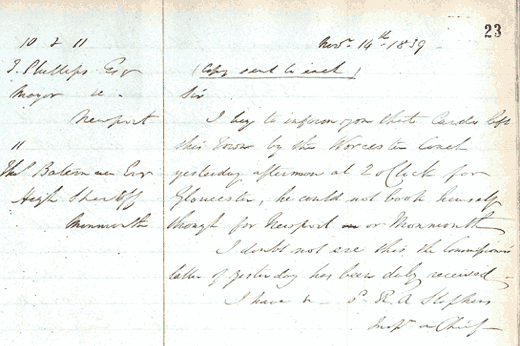 23
Novr. 14th 1839
10 & 11
T. Phillips Esqr
Mayor &c
Newport
11
Thos Bateman Esqr
High Sheriff
Monmouth
(Copy sent to each)
Sir
I beg to inform you that Cardo left
this Town by the Worcester Coach
yesterday afternoon at 2 oClock for
Gloucester, he could not book himself
though for Newport or Monmouth
I doubt not ere this the Commissioners
letter of yesterday has been duly received
I have &c R. A Stephens
Inspr in Chief